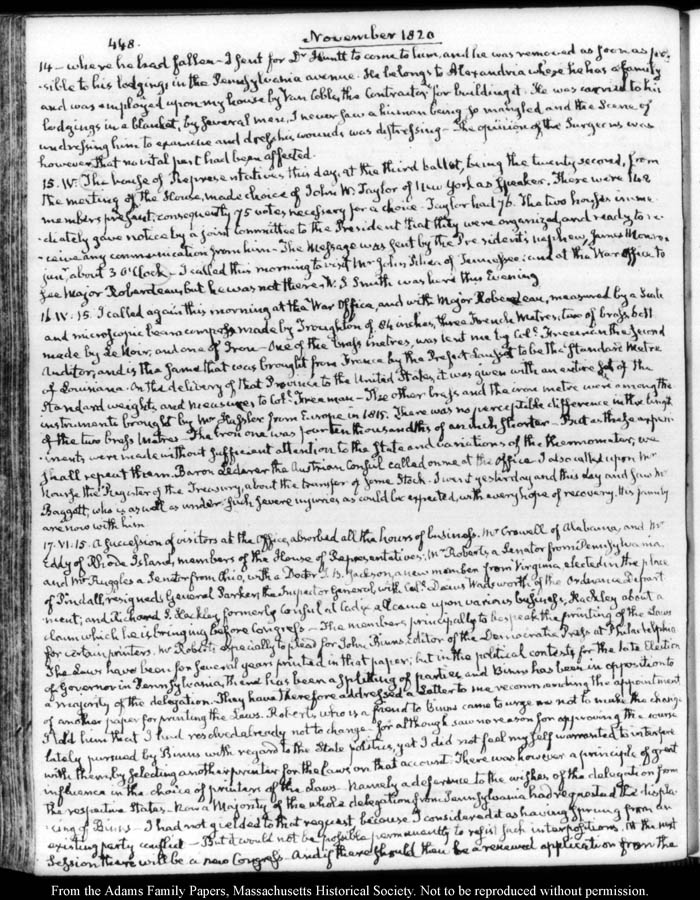 448.
November 1820
14 - where he had fallen - I sent for Dr Huntt to come to him, and he was removed as soon as pos-
-sible to his lodgings in the Pennsylvania avenue. He belongs to Alexandria where he has a family
and was employed upon my house by Van Coble, the Contractor for building it. He was carried to his
lodgings in a blanket, by several men. I never saw a human being so mangled and the Scene of
undressing him to examine and dress his wounds was distressing - The opinion of the Surgeons was
however that no vital part had been affected.
15. IV. The house of Representatives this day, at the third ballot, being the twenty second, from
the meeting of the House, made choice of John W. Taylor of New York as Speaker. There were 148
members present, consequently 75 votes necessary for a choice. Taylor had 76. The two houses imme-
-diately gave notice by a joint Committee to the President that they were organized, and ready to re-
-ceive any communication from him - The Message was sent by the President's nephew, James Monroe
junr. about 3 O'Clock - I called this morning to visit Mr John of Tennessee: and at the War Office to
see Major Roberdeau, but he was not there. W. S. Smith was here this Evening
16. IV. 15. I called again this morning at the War Office, and with Major Roberdeau, measured by a Scale
and microscopic beam compass made by Troughton of 84 inches, three French Metres, two of brass, both
made by Le Noir, and one of Iron - One of the brass metres, was lent me by Coll. Freeman the Second
Auditor, and is the same that was brought from France by the Prefect Laussat to be the Standard Metre
of Louisiana. On the delivery of that Province to the United States, it was given with an entire set of the
Standard weights and measures, to Coll. Freeman - The other brass and the iron metre were among the
instruments brought by Mr Hassler from Europe in 1815. There was no perceptible difference in the length
of the two brass Metres - The Iron one was four ten thousandths of an inch shorter - But as these experi-
-ments were made without sufficient attention to the State and variations of the thermometer, we
shall repeat them. Baron Lederer the Austrian Consul called on me at the office. I also called upon Mr
Nourse the Register of the Treasury, about the transfer of some Stock. I went yesterday and this day and saw Mr
Baggott, who is as well as under such severe injuries, as could be expected, with every hope of recovery. His family
are now with him
17. VI. 15. A succession of visitors at the office, absorbed all the hours of business. Mr Crowell of Alabama, and Mr
Eddy of Rhode Island, members of the House of Representatives. Mr Roberts, a Senator from Pennsylvania
and Mr Ruggles a Senator from Ohio, with a Doctor J. B. Jackson, a new member from Virginia elected in the place
of Pindall, resigned; General Parker, the Inspector General, with Coll. Decius Wadsworth of the Ordnance Depart
ment; and Richard S. Hackley, formerly Consul at Cadiz all came upon various business, Hackley about a
claim which he is bringing before Congress - The members, principally to bespeak the printing of the Laws
for certain printers. Mr Roberts especially to plead for John Binns, Editor of the Democratic Press at Philadelphia
The Laws have been for several years printed in that paper; but in the political contests for the late Election
of Governor in Pennsylvania, there has been a splitting of parties and Binns has been in opposition to
a majority of the delegation. They have therefore addressed a Letter to me recommending the appointment
of another paper for printing the Laws. Roberts who is a friend to Binns came to urge me not to make the change
I told him that I had resolved already not to change - for although I saw no reason for approving the course
lately pursued by Binns with regard to the State politics, yet I did not feel myself warranted to interfere
with them by selecting another printer for the Laws on that account. There was however a principle of great
influence in the choice of printers of the Laws. Namely a deference to the wishes of the delegation from
the respective States. Now a Majority of the whole delegation from Pennsylvania had requested the displa-
-cing of Binns - I had not yielded to that request because I considered it as having sprung from an
existing party conflict - But it would not be possible permanently to resist such interpositions. At the next
Session there will be a new Congress. And if there should then be a renewed application from the
From the Adams Family Papers, Massachusetts Historical Society. Not to be reproduced without permission.